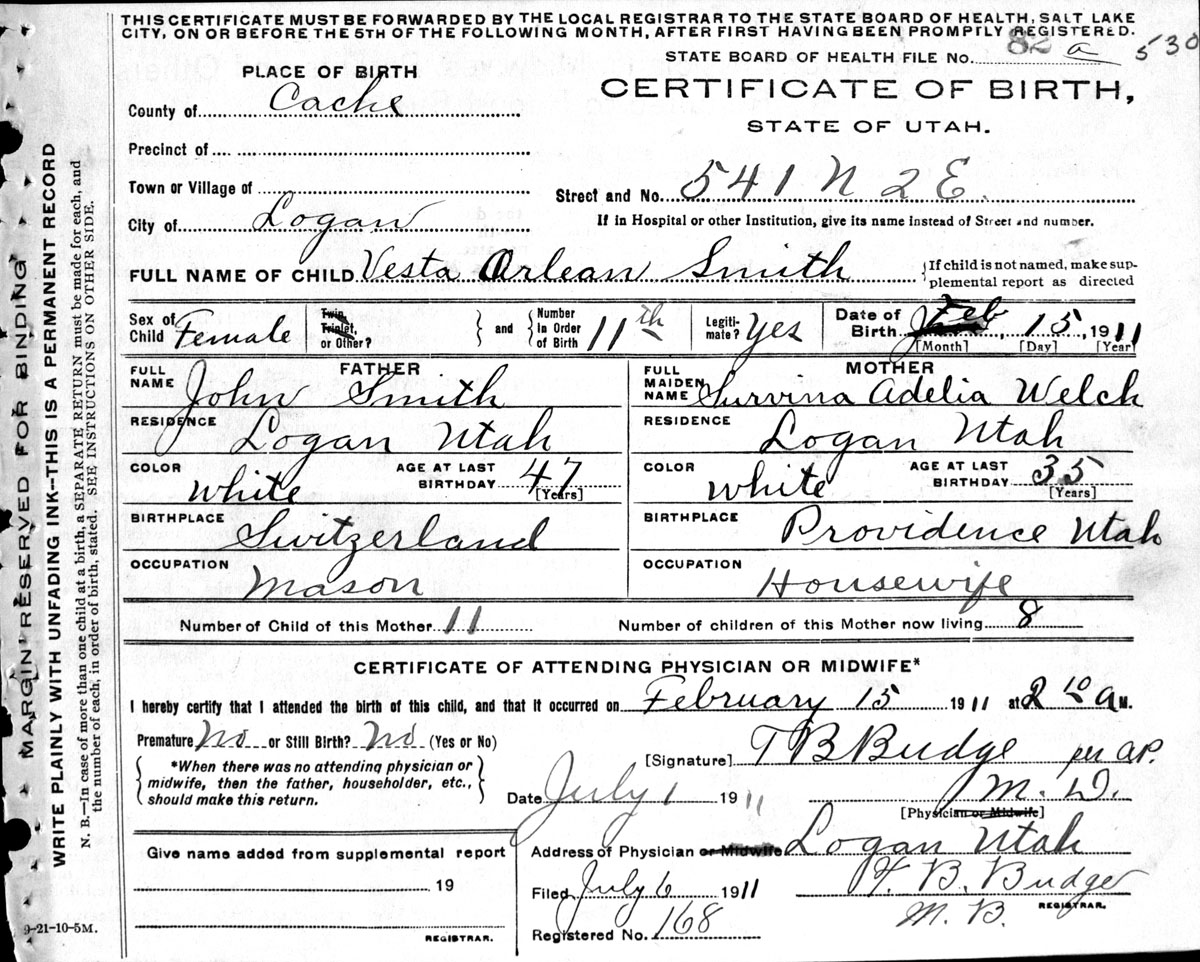 THIS CERTIFICATE MUST BE FORWARDED BY THE LOCAL REGISTRAR TO THE STATE BOARD OF HEALTH, SALT LAKE
CITY, ON OR BEFORE THE 5TH OF THE FOLLOWING MONTH, AFTER FIRST HAVING BEEN PROMPTLY REGISTERED.
STATE BOARD OF HEALTH FILE No. 82 a 530
PLACE OF BIRTH
CERTIFICATE OF BIRTH,
STATE OF UTAH.
County of Cache
Precinct of
Town or Village of
Street and No. 541 N 2 E.
City of Logan
If in Hospital or other Institution, give its name instead of Street and number.
FULL NAME OF CHILD Vesta Orlean Smith
{If child is not named, make sup-
plemental report as directed
Sex of Child Female
Twin, Triplet, or Other?
and
Number in Order of Birth 11th
Legiti-mate? Yes
Date of Birth Feb 15, 1911
[Month] [Day] [Year]
FATHER
FULL NAME John Smith
RESIDENCE Logan Utah
COLOR White AGE AT LAST BIRTHDAY 47 [Years]
BIRTHPLACE Switzerland
OCCUPATION Mason
MOTHER
FULL MAIDEN NAME Survina Adelia Welch
RESIDENCE Logan Utah
COLOR White AGE AT LAST BIRTHDAY 35 [Years]
BIRTHPLACE Providence Utah
OCCUPATION Housewife
Number of Child of this Mother 11 Number of children of this Mother now living 8
CERTIFICATE OF ATTENDING PHYSICIAN OR MIDWIFE*
I hereby certify that I attended the birth of this child, and that it occurred on February 15 1911 at 2 10 a M.
Premature No or Still Birth? No (Yes or No)
*When there was no attending physician or
midwife, then the father, householder, etc.,
should make this return.
[Signature] T B Budge per AP.
M. D.
Date July 1 1911
[Physician or Midwife]
Address of Physician or Midwife Logan Utah
Give name added from supplemental report
19
REGISTRAR.
Filed July 6 1911
T. B. Budge
REGISTRAR.
M. B.
Registered No. 168
9-21-10-5M.
MARGIN RESERVED FOR BINDING
WRITE PLAINLY WITH UNFADING INK--THIS IS A PERMANENT RECORD
N. B.—In case of more than one child at a birth, a SEPARATE RETURN must be made for each, and
the number of each, in order of birth, stated. SEE INSTRUCTIONS ON OTHER SIDE.